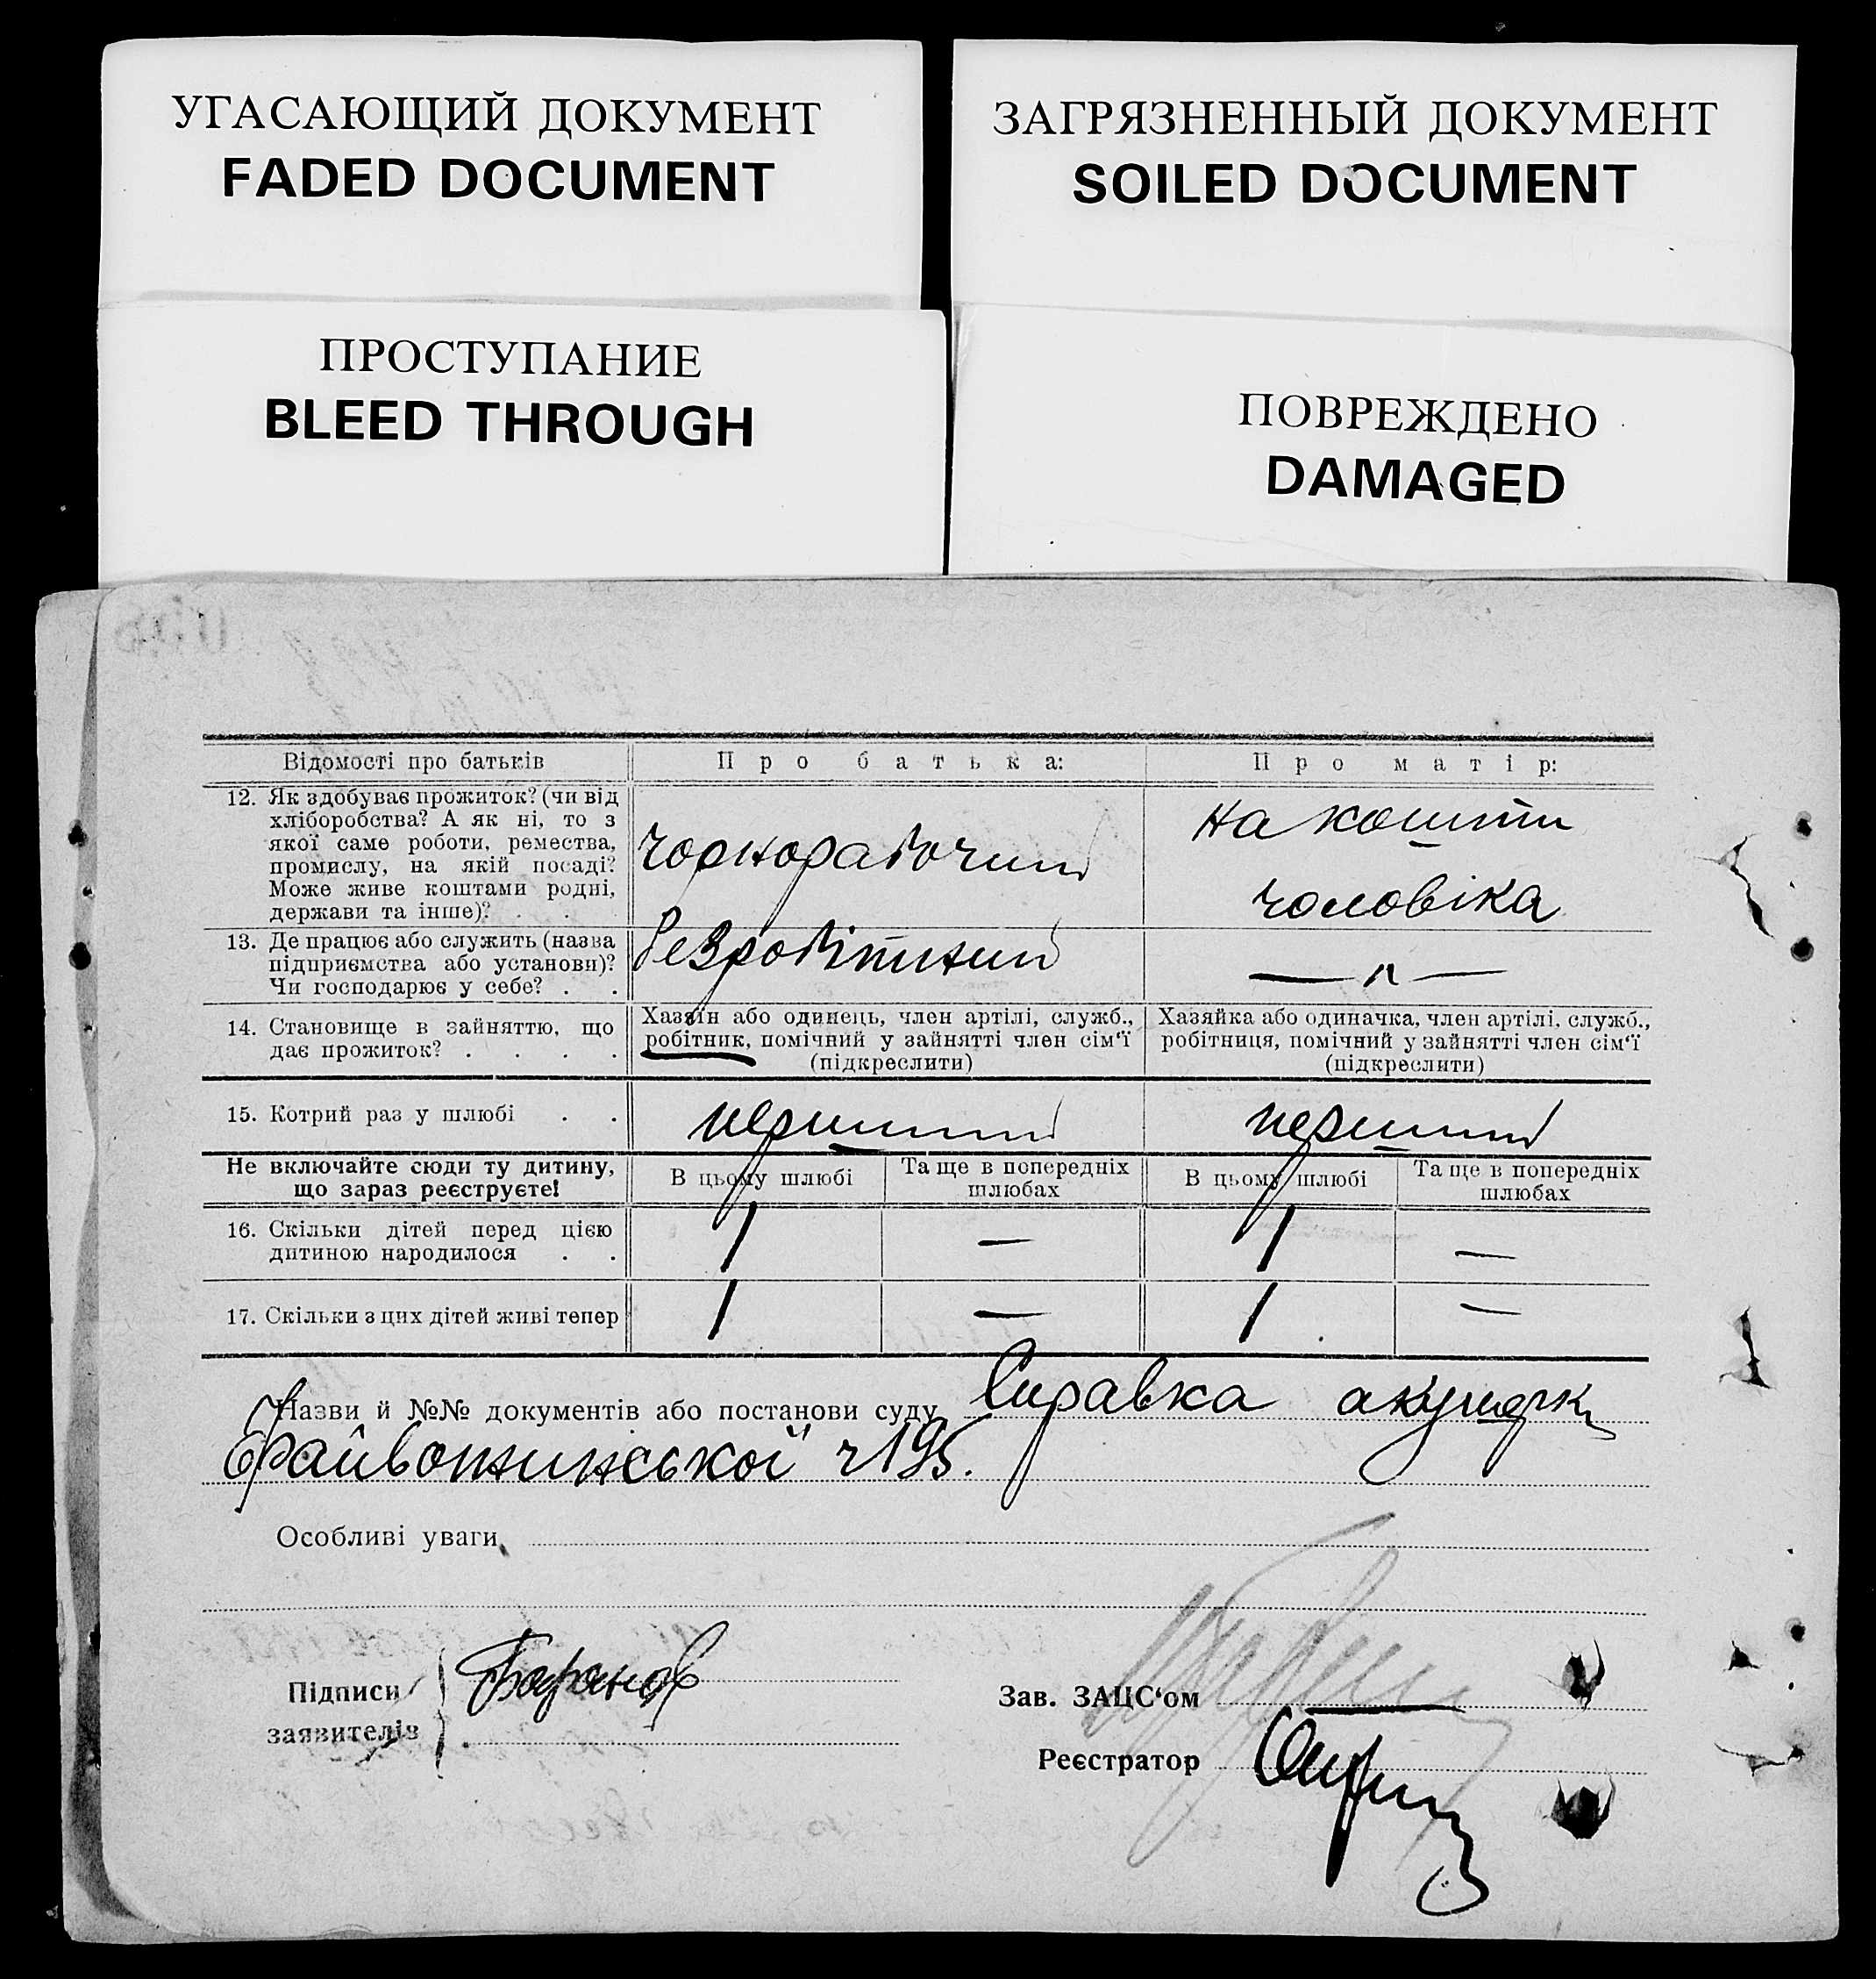 УГАСАЮЩИЙ ДОКУМЕНТ
FADED DOCUMENT
ЗАГРЯЗНЕННЫЙ ДОКУМЕНТ
SOILED DOCUMENT
ПРОСТУПАНИЕ
BLEED THROUGH
ПОВРЕЖДЕНО
DAMAGED
Відомості про батьків
Про батька:
Про матір:
12. Як здобуває прожиток? (чи від
хліборобства? А як ні, то з
якої саме роботи, ремества,
промислу, на якій посаді?
Може живе коштами родні,
держави та інше)? . .
чорнорабочий
на кошти
чоловіка
13. Де працює або служить (назва
підприємства або установи)?
Чи господарює у себе? . .
безробітний
— „ —
14. Становище в зайняттю, що
дає прожиток? . . . .
Хазяїн або одинець, член артілі, служб.,
робітник, помічний у зайнятті член сім‘ї
(підкреслити)
Хазяйка або одиначка, член артілі, служб.,
робітниця, помічний у зайнятті член сім‘ї
(підкреслити)
15. Котрий раз у шлюбі . .
перший
перший
Не включайте сюди ту дитину,
що зараз реєструєте!
В цьому шлюбі
Та ще в попередніх
шлюбах
В цьому шлюбі
Та ще в попередніх
шлюбах
16. Скільки дітей перед цією
дитиною народилося . .
1
—
1
—
17. Скільки з цих дітей живі тепер
1
—
1
—
Назви й №№ документів або постанови суду Справка акушерки
ч 195.
Особливі уваги
Підписи
заявителів
Баранов
Зав. ЗАЦС‘ом
Реєстратор